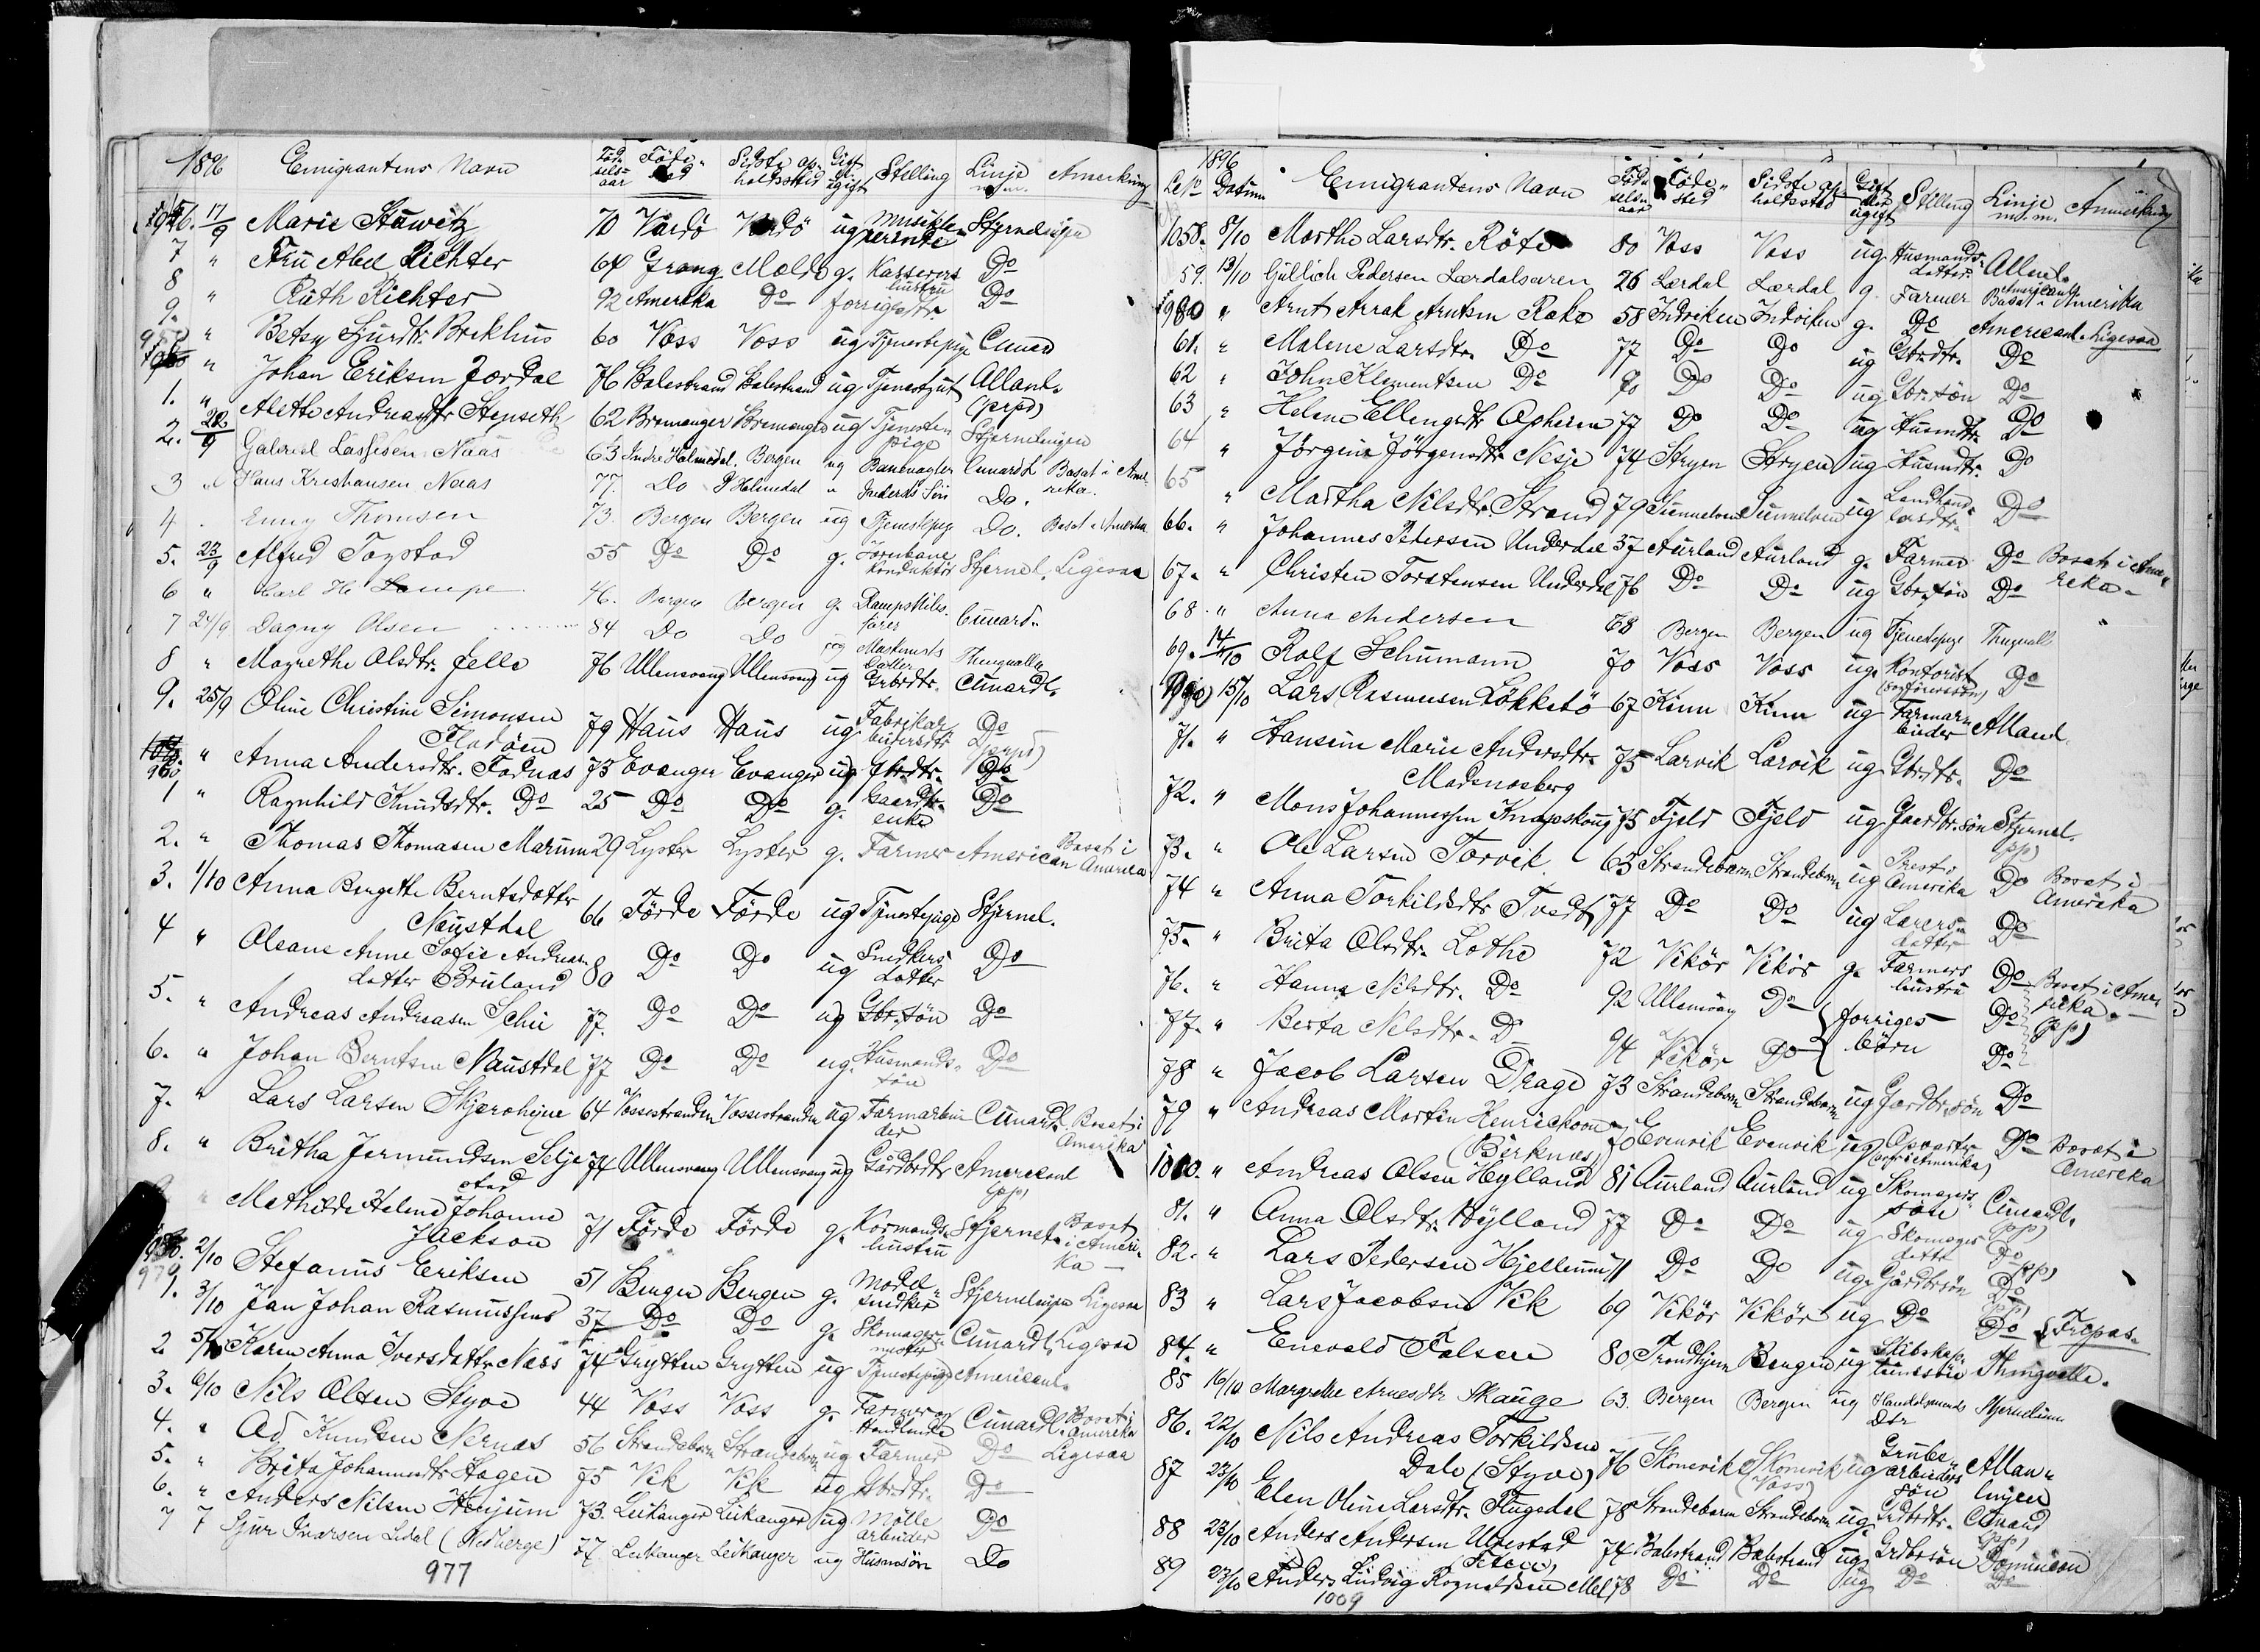 1896 Emigrantens Navn Föd-selsaar Födested Sidste opholdssted Gift el. ugift Stilling Linje m.m. Anmerkning
17/9 Marie Stuwitz 70 Vardö Vardö ug Stjernelinjen
7 " Fru Abel Richter 64 Grong Molde g. Kasserers hustru Do
8 " Ruth Richter 92 Amerika Do forriges dtr. Do
9. " Betsy Sjurdtr. Brekhus 60 Voss Voss ug Tjenestepige Cunard
" Johan Eriksen Jordal 76 Balestrand Balestrand ug Tjenestgut Allanl. (prpd)
1. " Alette Andreasdtr Stenseth 62 Bremanger Bremanger ug Tjenestepige Stjernelinjen
2. 22/9 Gabriel Lassesen Naas 63 Indre Holmedal Bergen ug Banevagter Cunardl Bosat i Amerika.
3 " Hans Kristiansen Naas 77. Do I Holmedal " Indersts Sön Do.
4 . Enny Thomsen 73. Bergen Bergen ug Tjenestepig Do. Bosat i Amerika
5. 23/9 Alfred Togstad 55 Do Do g. Jernbane konduktör Stjernel. Ligesaa
6 " Karl H Lampe 46. Bergen Bergen g. Dampskibsförer Cunard.
7 24/9 Dagny Olsen 84 Do Do ug datter Thingvalla
8 " Magrethe Olsdtr. Jelle 76 Ullensvang Ullensvang ug Grbrdtr. Cunardl.
9. 25/9 Oline Christine Simonsen Flatöen 79 Haus Haus ug Fabrikarbeidersdtr Do (prpd)
960 " Anna Andersdtr. Fadnas 73 Evanger Evanger ug Gbrdtr. Do
1 " Ragnhild Knudsdtr. Do 25 Do Do g. Gaardbr. enke Do
2. " Thomas Thomasen Marum 29 Lyster Lyster g. Farmer American Bosat i Amerika
3. 1/10 Anna Bergitte Berntsdatter Naustdal 66 Förde Förde ug Tjenestepige Stjernel.
4 " Oleane Anne Sofie Andreasdatter Bruland 80 Do Do ug Snedkers datter Do
5. " Andreas Andreasen Schei 77. Do Do ug Gbr.sön Do
6. " Johan Berntsen Naustdal 77 Do Do ug. Husmandssön Do
7. " Lars Larsen Skjerveheiene 64 Vossestranden Vossestranden ug Farmarbeider Cunardl. Bosat i Amerika
8. " Britha Jermundsen Seljestad 74 Ullensvang Ullensvang ug Gårdbrdtr Americanl (pp)
" Mathilde Helene Johanne Jackson 71 Förde Förde g. Kormands hustru Stjernel. Bosat i Amerika
970 2/10 Stefanus Eriksen 51 Bergen Bergen g. Model snedker Stjernelinjen Ligesaa
1. 3/10 Jan Johan Rasmussens 37 Do Do g. Skomagermester Cunardl Ligesaa
2 5/10 Karen Anna Iversdatter Næss 74 Grytten Grytten ug Tjenestepige Americanl.
3. 6/10 Nils Olsen Styve 44 Voss Voss g. Farmer og Handlende Cunardl Bosat i Amerika
4. " Ad Knudsen Nernæs 56 Strandebarm Strandebarm ug Farmer Do Ligesaa
5. " Brita Johannesdtr Hagen 75 Vik Vik ug Gbrdtr. Do
6. " Anders Nilsen Henjum 73. Leikanger Leikanger ug Mölle arbeider Do
7 7 Sjur Ivarsen Lidal (Hedberge) 77 Leikanger Leikanger ug Husmsön Do
977
1896
Lnr Datum Emigrantens Navn Födselsaar Födested Sidste opholdssted Gift eller ugift Stilling Linje m.m. Anmerkning
1058. 8/10 Marthe Larsdtr. Röte 80 Voss Voss ug. Husmandsdatter Allanl.
59. 13/10 Gullich Pedersen Lærdalsøren 26 Lærdal Lærdal g. Farmer Americanl Bosat i Amerika
" Arnt Arntsen Rake 58 Indviken Indviken g. Do Americanl. Ligesaa
61. " Malene Larsdtr. Do 77 Do Do ug Gbrdtr. Do
62 " John Klementsen Do 70 Do Do ug Gbr.sön Do
63 " Helene Ellingsdtr Opheim 77 Do Do ug Husmdtr. Do
64 " Jörgine Jörgensdtr Nesje 74 Stryen Stryen ug Husmdtr. Do
65 " Martha Nilsdtr. Strand 79 Sunnelven Sunnelven ug Landhandlersdtr. Do
66. " Johannes Petersen Underdal 37 Aurland Aurland g. Farmer Do Bosat i Amerika.
67. " Christen Torstensen Underdal 76 Do Do ug Gbr.sön Do
68. " Anna Andersen 68 Bergen Bergen ug Tjenestepige Thingvalla
69. 14/10 Rolf Schumann 70 Voss Voss ug. Kontorist (Sagförerssön) Do
15/10 Lars Rasmussen Lökkebö 67 Kinn Kinn ug Farmarbeider Allanl.
71. " Hansine Marie Andersdtr. Madsnosberg 75 Larvik Larvik ug Gbrdtr. Do
72. " Mons Johannessen Knapskoug 75 Fjeld Fjeld ug Gaardbr.sön Stjernel. (pp)
73. " Ole Larsen Torvik 63 Strandebarm Strandebarm ug Prest i Amerika Do Bosat i Amerika
74 " Anna Torkildsdtr Tvedt 77 Do Do ug Lærersdatter Do
75. " Brita Olsdtr. Lothe 72 Vikör Vikör g. Farmers hustru Do Bosat i Amerika. (pp)
76. " Hanna Nilsdtr. Do 92 Ullensvang Do forriges börn Do
77. " Berta Nilsdtr. Do 94 Vikör Do Do
78 " Jacob Larsen Drage 73 Strandebarm Strandebarm ug Gardbr.sön Do
79 " Andreas Martin Henrickson (Birknæs) 70 Evenvik Evenvik ug Opvarter Do Bosat i Amerika
" Andreas Olsen Hylland 81 Aurland Aurland ug Skomagers sön Cunardl. (pp)
81. " Anna Olsdtr. Hylland 77 Do Do ug Skomager datter Do (pp)
82. " Lars Pedersen Hjellum 71 Do Do ug. Gårdbrsön Do (pp)
83 " Lars Jacobsen Vik 69 Vikör Vikör ug Do Do Frepas.
84. " Enevold Falsen 80 Trondhjem Bergen ug Thingvalla.
85 16/10 Margrethe Arnesdtr Skauge 63. Bergen Bergen ug Handelsmands Dtr Stjernelinien
86. 22/10 Nils Andreas Torkildsen Dale (Styve) 76 Skonevik Skonevik (Voss) ug Grubearbeiders sön Allanlinjen
87 23/10 Elen Oline Larsdtr. Flugedal 78 Strandebarm Strandebarm ug Grdbrdtr. Cunard (pp)
88 23/10 Anders Andersen Urestad 74 Balestrand Balestrand ug Grdbrsön Dominion
89 23/10 Anders Ludvig Rognaldsen Mel 78 Do Do ug Do Do
1009